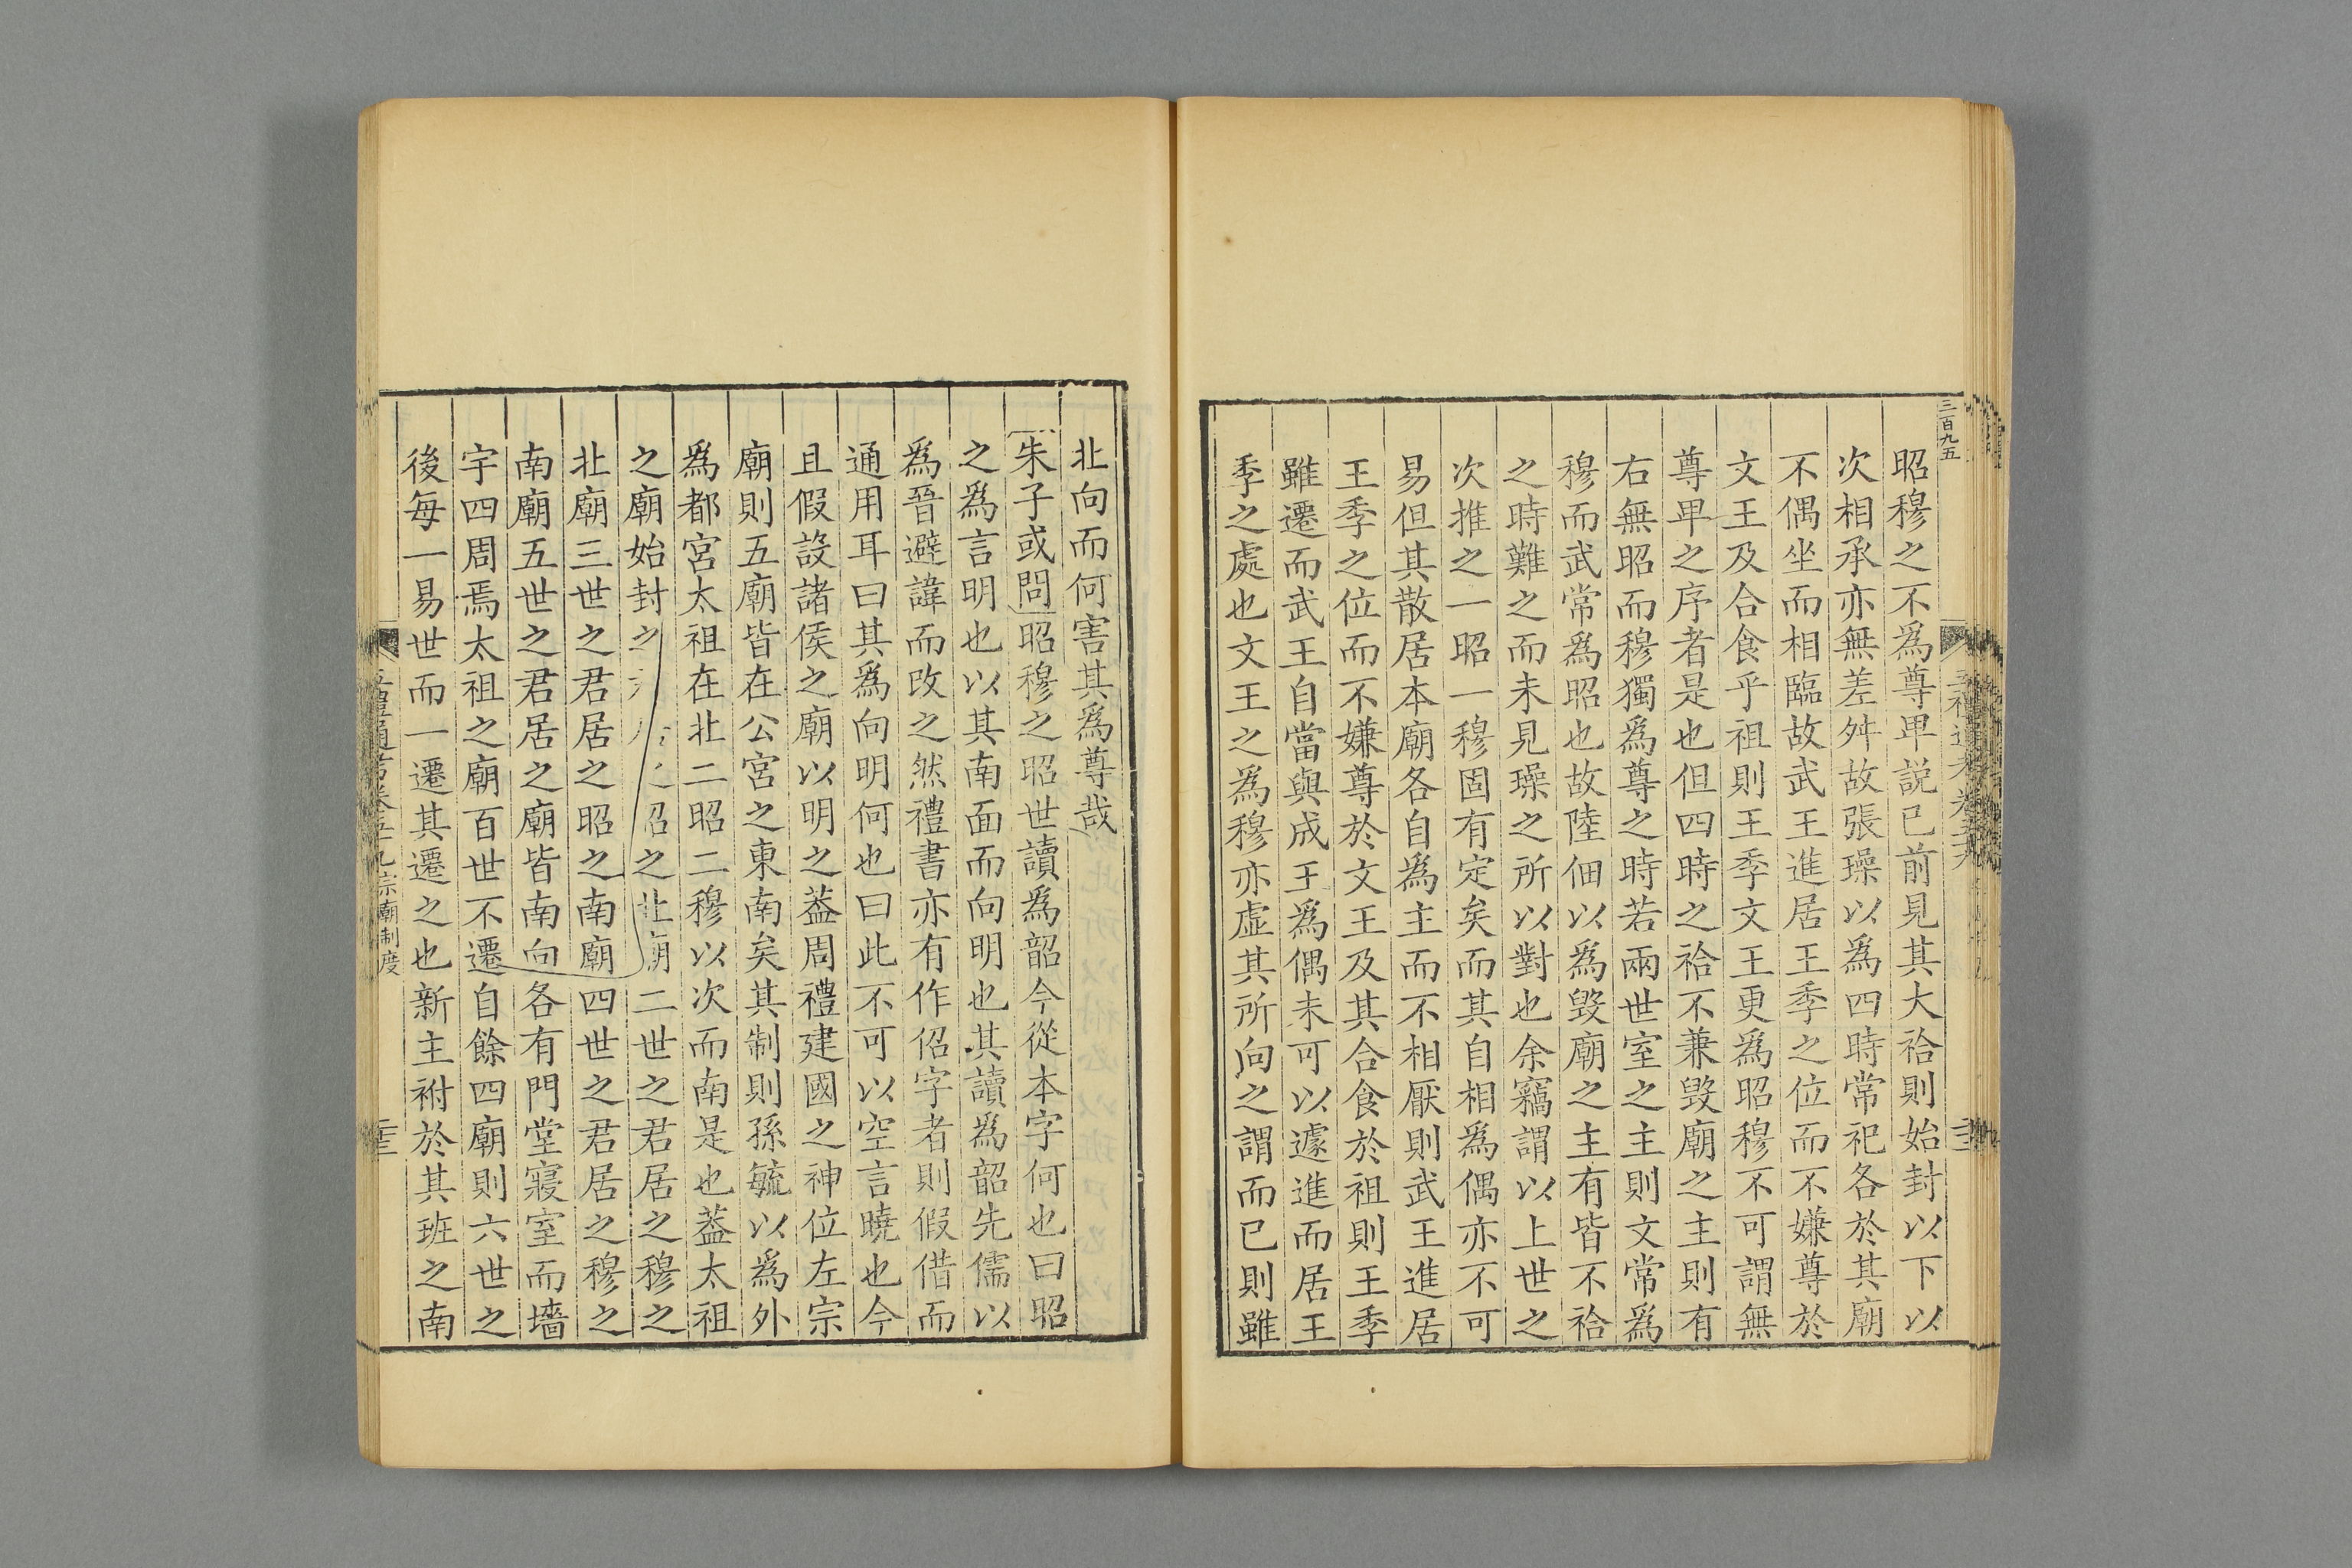 三百九五
昭穆之不爲尊甲説已前見其大祫則始封以下以
次相承亦無差舛故張璪以爲四時常祀各於其廟
不偶坐而相臨故武王進居王季之位而不嫌尊於
文王及合食乎祖則王季文王更爲昭穆不可謂無
尊甲之序者是也但四時之祫不兼毀廟之主則有
右無昭而穆獨爲尊之時若兩世室之主則文常爲
穆而武常爲昭也故陸佃以爲毀廟之主有皆不祫
之時難之而未見璪之所以對也余竊謂以上世之
次推之一昭一穆固有定矣而其自相爲偶亦不可
易但其散居本廟各自爲主而不相厭則武王進居
王季之位而不嫌尊於文王及其合食於祖則王季
雖遷而武王自當與成王爲偶未可以遽進而居王
季之處也文王之爲穆亦虚其所向之謂而已則雖
北向而何害其爲尊哉
朱子或問昭穆之昭世讀爲韶今從本字何也曰昭
之爲言明也以其南面而向明也其讀爲韶先儒以
爲晉避諱而改之然禮書亦有作佋字者則假借而
通用耳曰其爲向明何也曰此不可以空言曉也今
且假設諸侯之廟以明之葢周禮建國之神位左宗
廟則五廟皆在公宮之東南矣其制則孫毓以爲外
爲都宮太祖在北二昭二穆以次而南是也葢太祖
之廟始封之昭之北廟二世之君居之穆之
北廟三世之君居之昭之南廟四世之君居之穆之
南廟五世之君居之廟皆南向各有門堂寢室而墻
宇四周焉太祖之廟百世不遷自餘四廟則六世之
後每一易世而一遷其遷之也新主祔於其班之南
宗廟制度